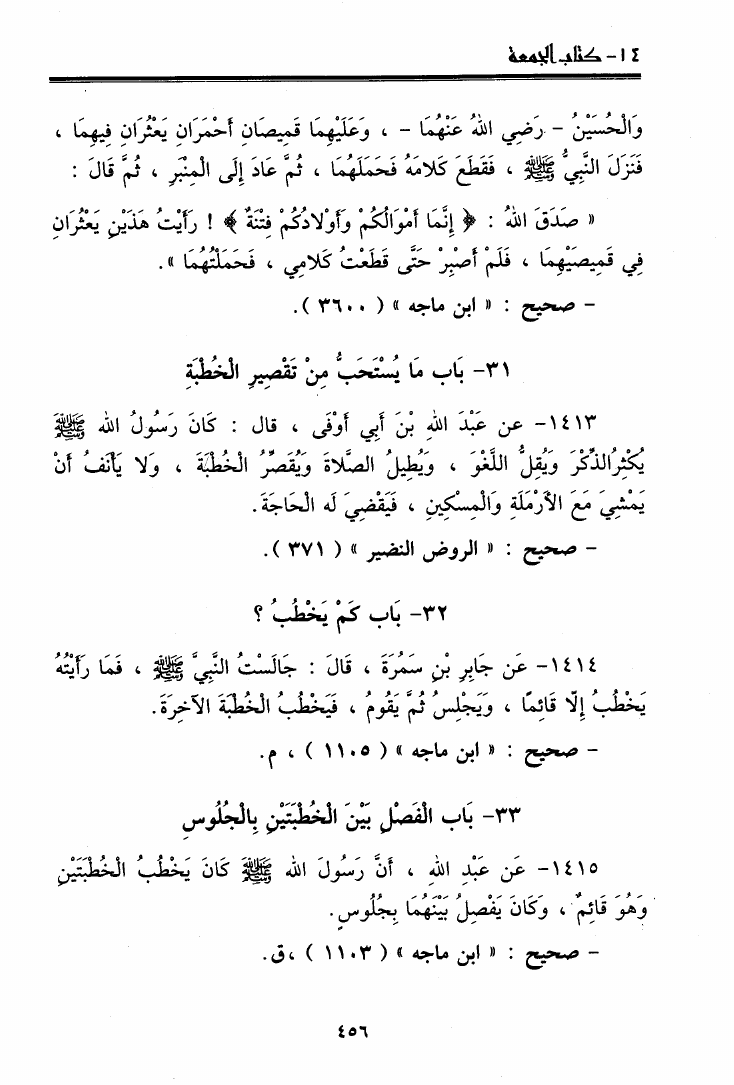 ١٤- كتاب الجمعة
وَالْحُسَيْنُ - رَضِي اللهُ عَنْهُمَا - ، وَعَلَيْهِمَا قَمِيصَانِ أَحْمَرَانِ يَعْثُرَانِ فِيهِمَا ،
فَنَزَلَ النَّبِيُّ ﷺ ، فَقَطَعَ كَلَامَهُ فَحَمَلَهُمَا ، ثُمَّ عَادَ إِلَى الْمِنْبَرِ ، ثُمَّ قَالَ :
« صَدَقَ اللهُ : ﴿ إِنَّمَا أَمْوَالُكُمْ وَأَوْلَادُكُمْ فِتْنَةٌ ﴾ ! رَأَيْتُ هَذَيْنِ يَعْثُرَانِ
فِي قَمِيصَيْهِمَا ، فَلَمْ أَصْبِرْ حَتَّى قَطَعْتُ كَلَامِي ، فَحَمَلْتُهُمَا ».
- صحيح : « ابن ماجه » ( ٣٦٠٠ ).
٣١- بَاب مَا يُسْتَحَبُّ مِنْ تَقْصِيرِ الْخُطْبَةِ
١٤١٣- عن عَبْدَ اللهِ بْنَ أَبِي أَوْفَى ، قال : كَانَ رَسُولُ الله ﷺ
يُكْثِرُ الذِّكْرَ وَيُقِلُّ اللَّغْوَ ، وَيُطِيلُ الصَّلَاةَ وَيُقَصِّرُ الْخُطْبَةَ ، وَلَا يَأْنَفُ أَنْ
يَمْشِيَ مَعَ الأَرْمَلَةِ وَالْمِسْكِينِ ، فَيَقْضِيَ لَه الْحَاجَةَ.
- صحيح : « الروض النضير » ( ٣٧١ ).
٣٢- بَاب كَمْ يَخْطُبُ ؟
١٤١٤- عَن جَابِرِ بْنِ سَمُرَةَ ، قَالَ : جَالَسْتُ النَّبِيَّ ﷺ ، فَمَا رَأَيْتُهُ
يَخْطُبُ إِلَّا قَائِمًا ، وَيَجْلِسُ ثُمَّ يَقُومُ ، فَيَخْطُبُ الْخُطْبَةَ الآخِرَةَ.
- صحيح : « ابن ماجه » ( ١١٠٥ ) ، م.
٣٣- بَاب الْفَصْلِ بَيْنَ الْخُطْبَتَيْنِ بِالْجُلُوسِ
١٤١٥- عَن عَبْدِ اللهِ ، أَنَّ رَسُولَ الله ﷺ كَانَ يَخْطُبُ الْخُطْبَتَيْنِ
وَهُوَ قَائِمٌ ، وَكَانَ يَفْصِلُ بَيْنَهُمَا بِجُلُوسٍ.
- صحيح : « ابن ماجه » ( ١١٠٣ ) ،ق.
٤٥٦